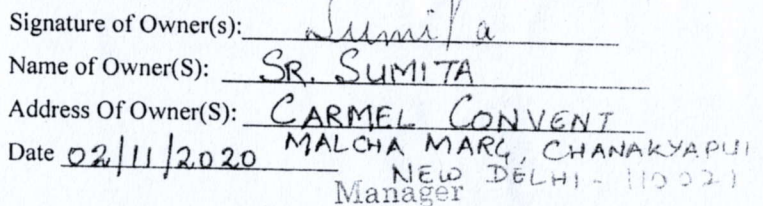 Signature of Owner(s): Sumita
Name of Owner(S): SR. SUMITA
Address Of Owner(S): CARMEL CONVENT
Date 02/11/2020 MALCHA MARG, CHANAKYAPUI
NEW DELHI - 110021
Manager